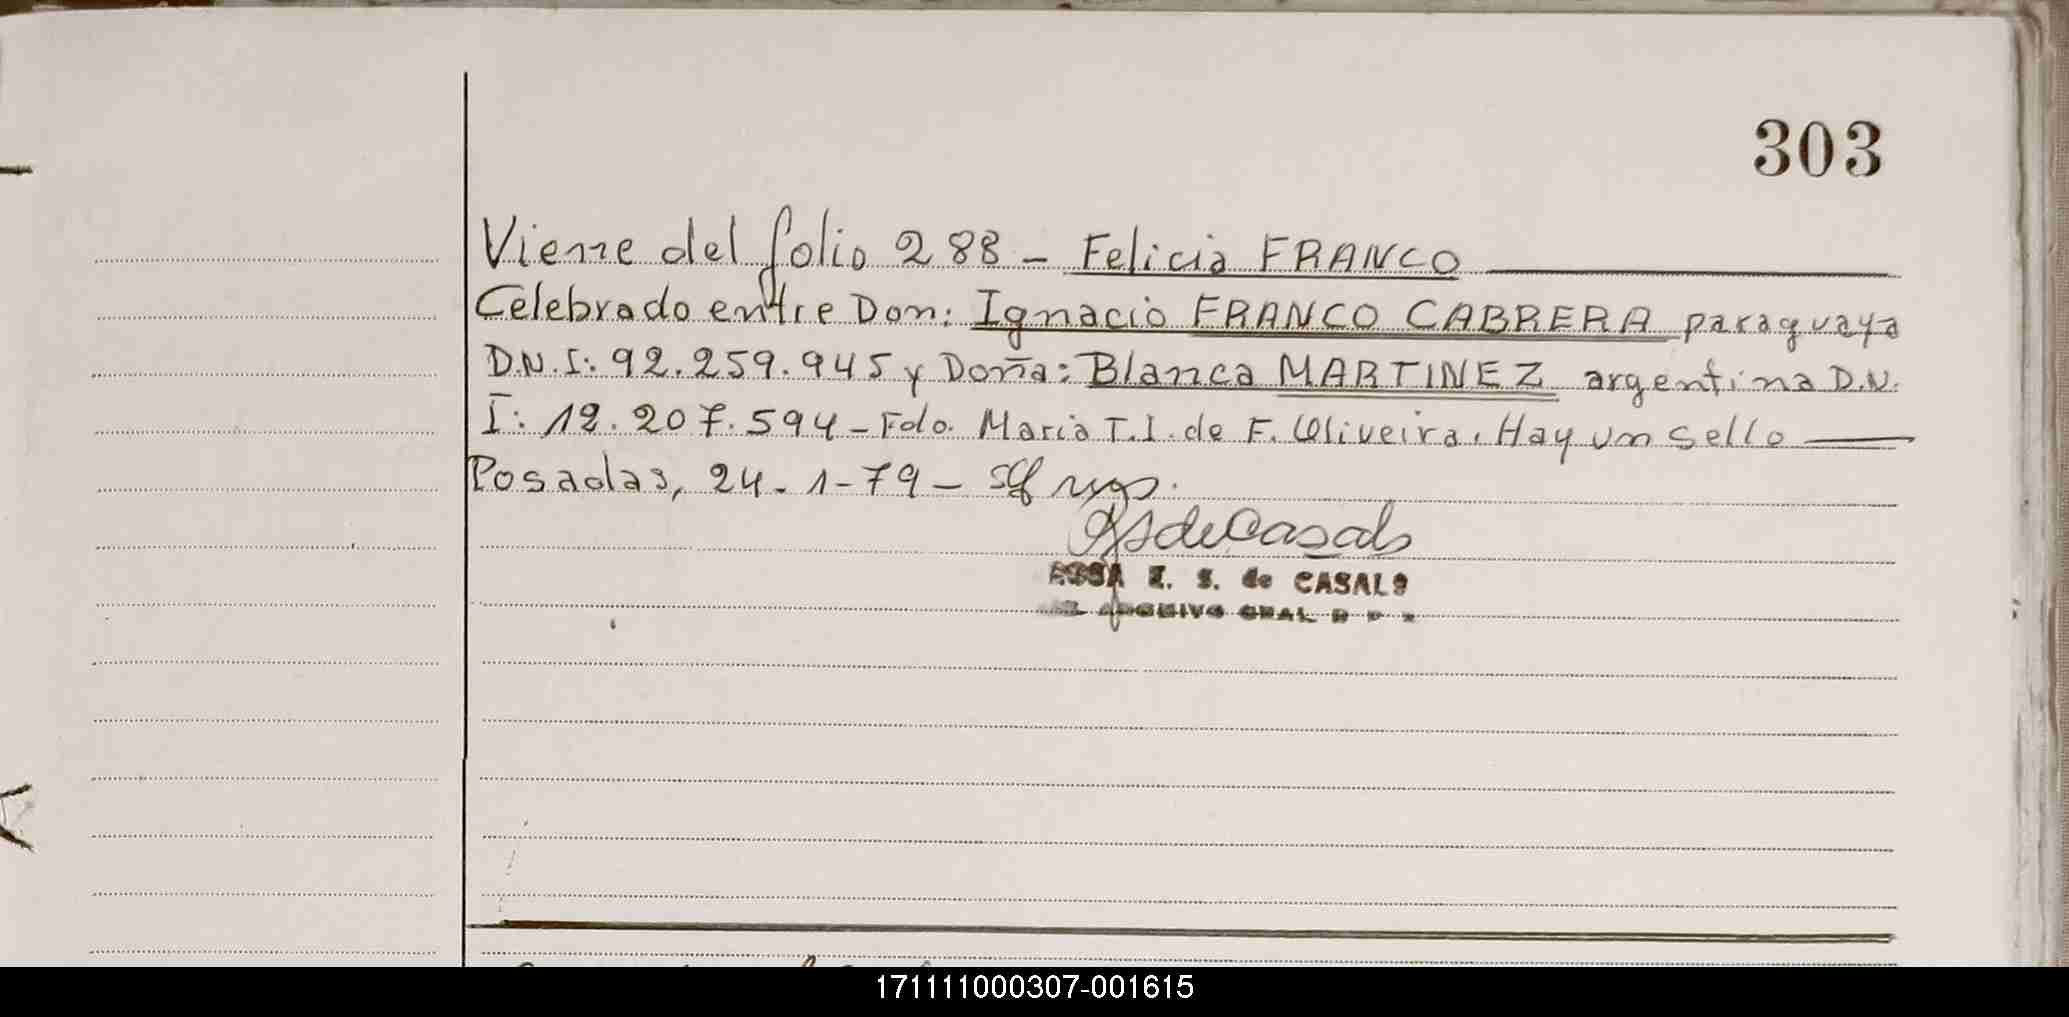 303
Viene del folio 288 - Felicia FRANCO
Celebrado entre Don: Ignacio FRANCO CABRERA paraguaya
D.N.I: 92.259.945 y Doña: Blanca MARTINEZ argentina D.N.
I: 12.207.594 - Fdo. Maria T.I. de F. Oliveira. Hay un sello
Posadas, 24-1-79 -
de Casals
E. S. de CASALS
ARCHIVO GRAL
171111000307-001615